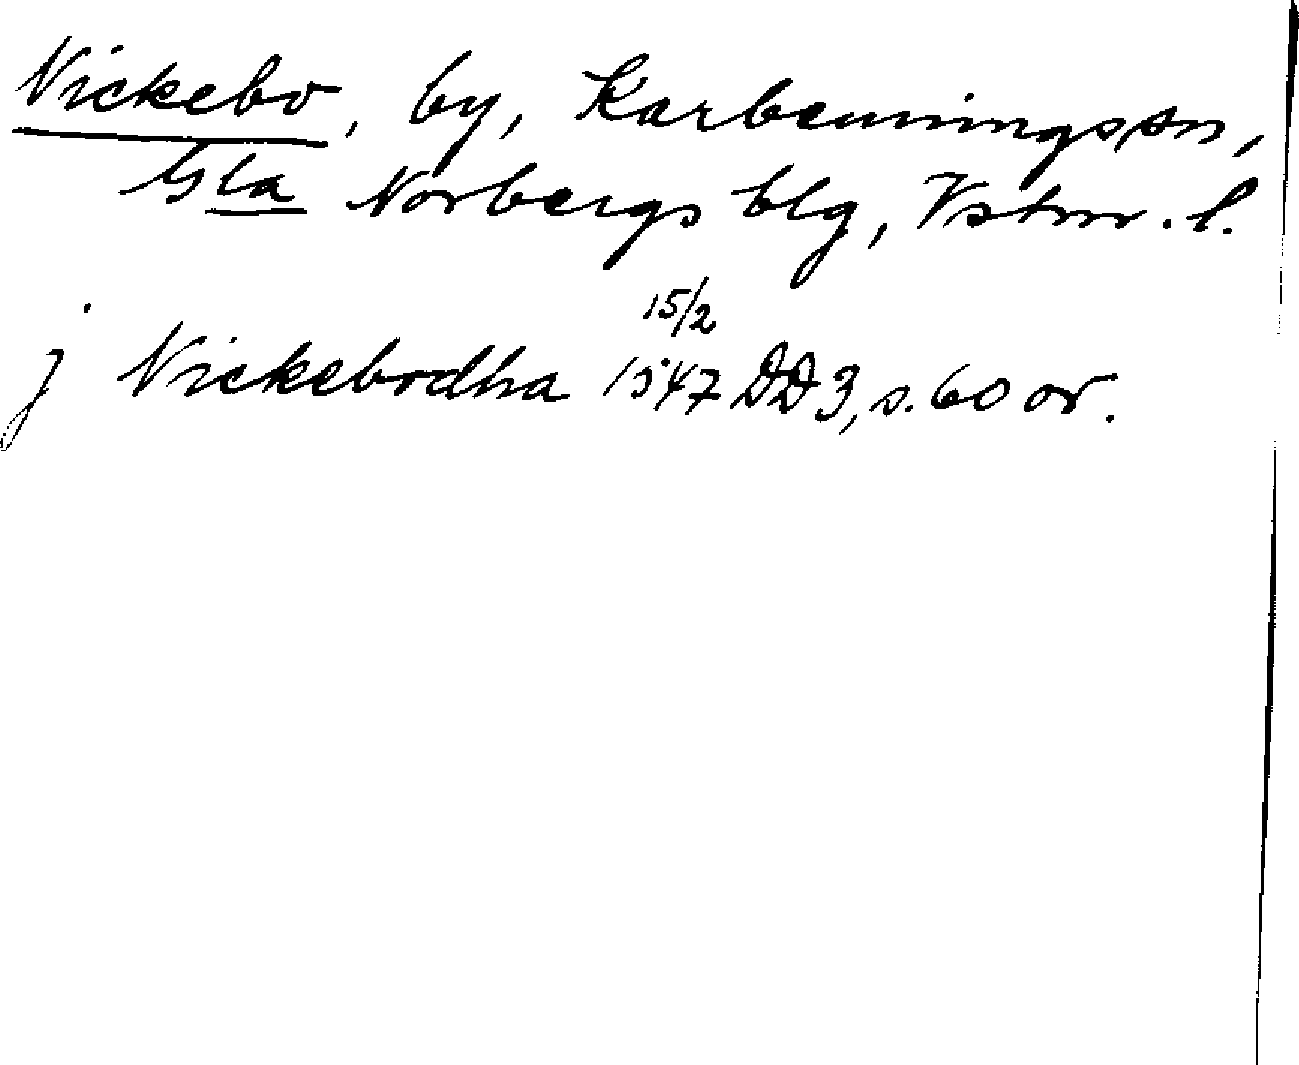 Nickebo, by, Karbenningssn,
Gla Norbergs blg, Vstm. l.
15/2
j Nickebodha 1547 DD 3, s. 60 or.